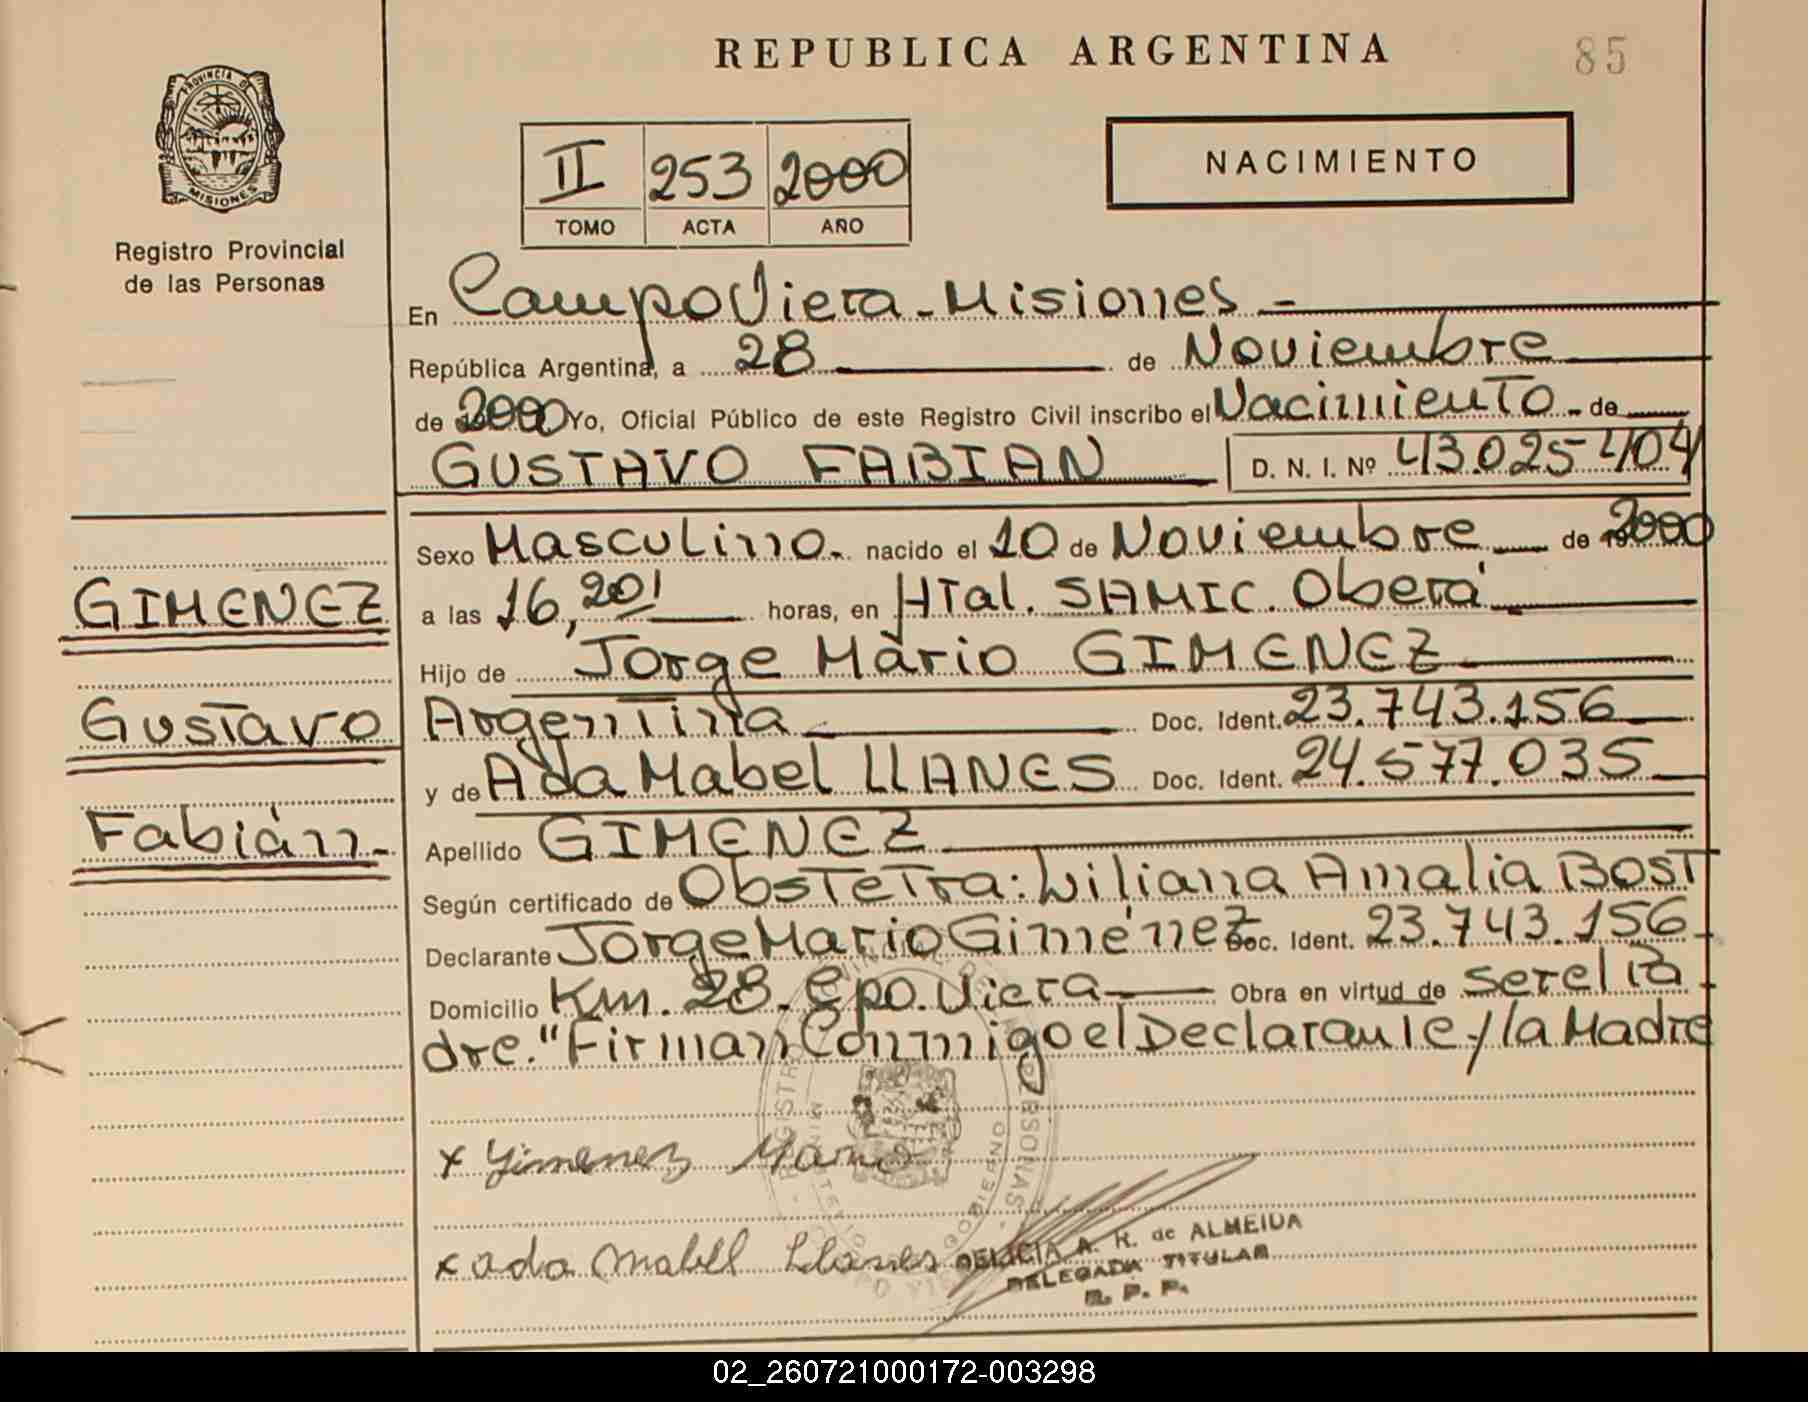 REPUBLICA ARGENTINA
85
PROVINCIA DE
MISIONES
Registro Provincial
de las Personas
NACIMIENTO
II 253 2000
TOMO ACTA AÑO
En Campo Viera - Misiones -
República Argentina, a 28 de Noviembre
de 2000 Yo, Oficial Público de este Registro Civil inscribo el Nacimiento - de
GUSTAVO FABIAN D. N. I. Nº 43.025.404
Sexo Masculino - nacido el 10 de Noviembre de 2000
a las 16,20' horas, en Htal. SAMIC. Oberá
Hijo de Jorge Mario GIMENEZ
Argentina Doc. Ident. 23.743.156
y de Ada Mabel LLANES Doc. Ident. 24.577.035
Apellido GIMENEZ
Según certificado de Obstetra: Liliana Amalia BOST
Declarante Jorge Mario Giménez Doc. Ident. 23.743.156
Domicilio Km. 28. Cpo. Viera Obra en virtud de ser el Pa
dre." Firman Conmigo el Declarante y la Madre
GIMENEZ
Gustavo
Fabián
x Gimenez Mario
x ada Mabel Llanes
DELICIA A. R. de ALMEIDA
DELEGADA TITULAR
R. P. P.
02_260721000172-003298